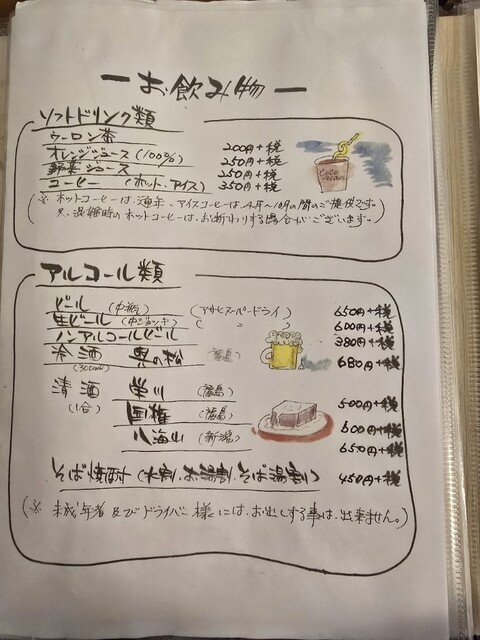 ーお飲み物ー
ソフトドリンク類
ウーロン茶 200円+税
オレンジジュース(100%) 250円+税
野菜ジュース 250円+税
コーヒー (ホット、アイス) 350円+税
(※ ホットコーヒーは、通年、アイスコーヒーは、4月〜10月の間のご提供です。
又、混雑時のホットコーヒーは、お断わりする場合がございます。)
アルコール類
ビール (中瓶) (アサヒスーパードライ) 650円+税
生ビール (中ジョッキ) ( 〃 ) 600円+税
ノンアルコールビール 380円+税
冷酒 奥の松 (福島) 680円+税
(300ml)
清酒 栄川 (福島) 500円+税
(1合) 国権 (福島) 600円+税
八海山 (新潟) 650円+税
そば焼酎 (水割、お湯割、そば湯割) 450円+税
(※ 未成年者及びドライバー様には、お出しする事は、出来ません。)